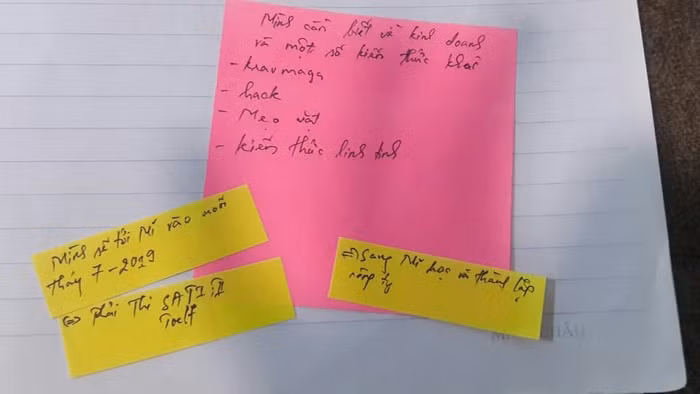 Mình cần biết về kinh doanh
và một số kiến thức khác
- kravmaga
- hack
- Mẹo vặt
- kiến thức linh tinh
Mình sẽ tới Mĩ vào
tháy 7-2019
⇔ phải Thi SAT I, II
Toelf
⇒ Sang Mĩ học và thành lập
công ty